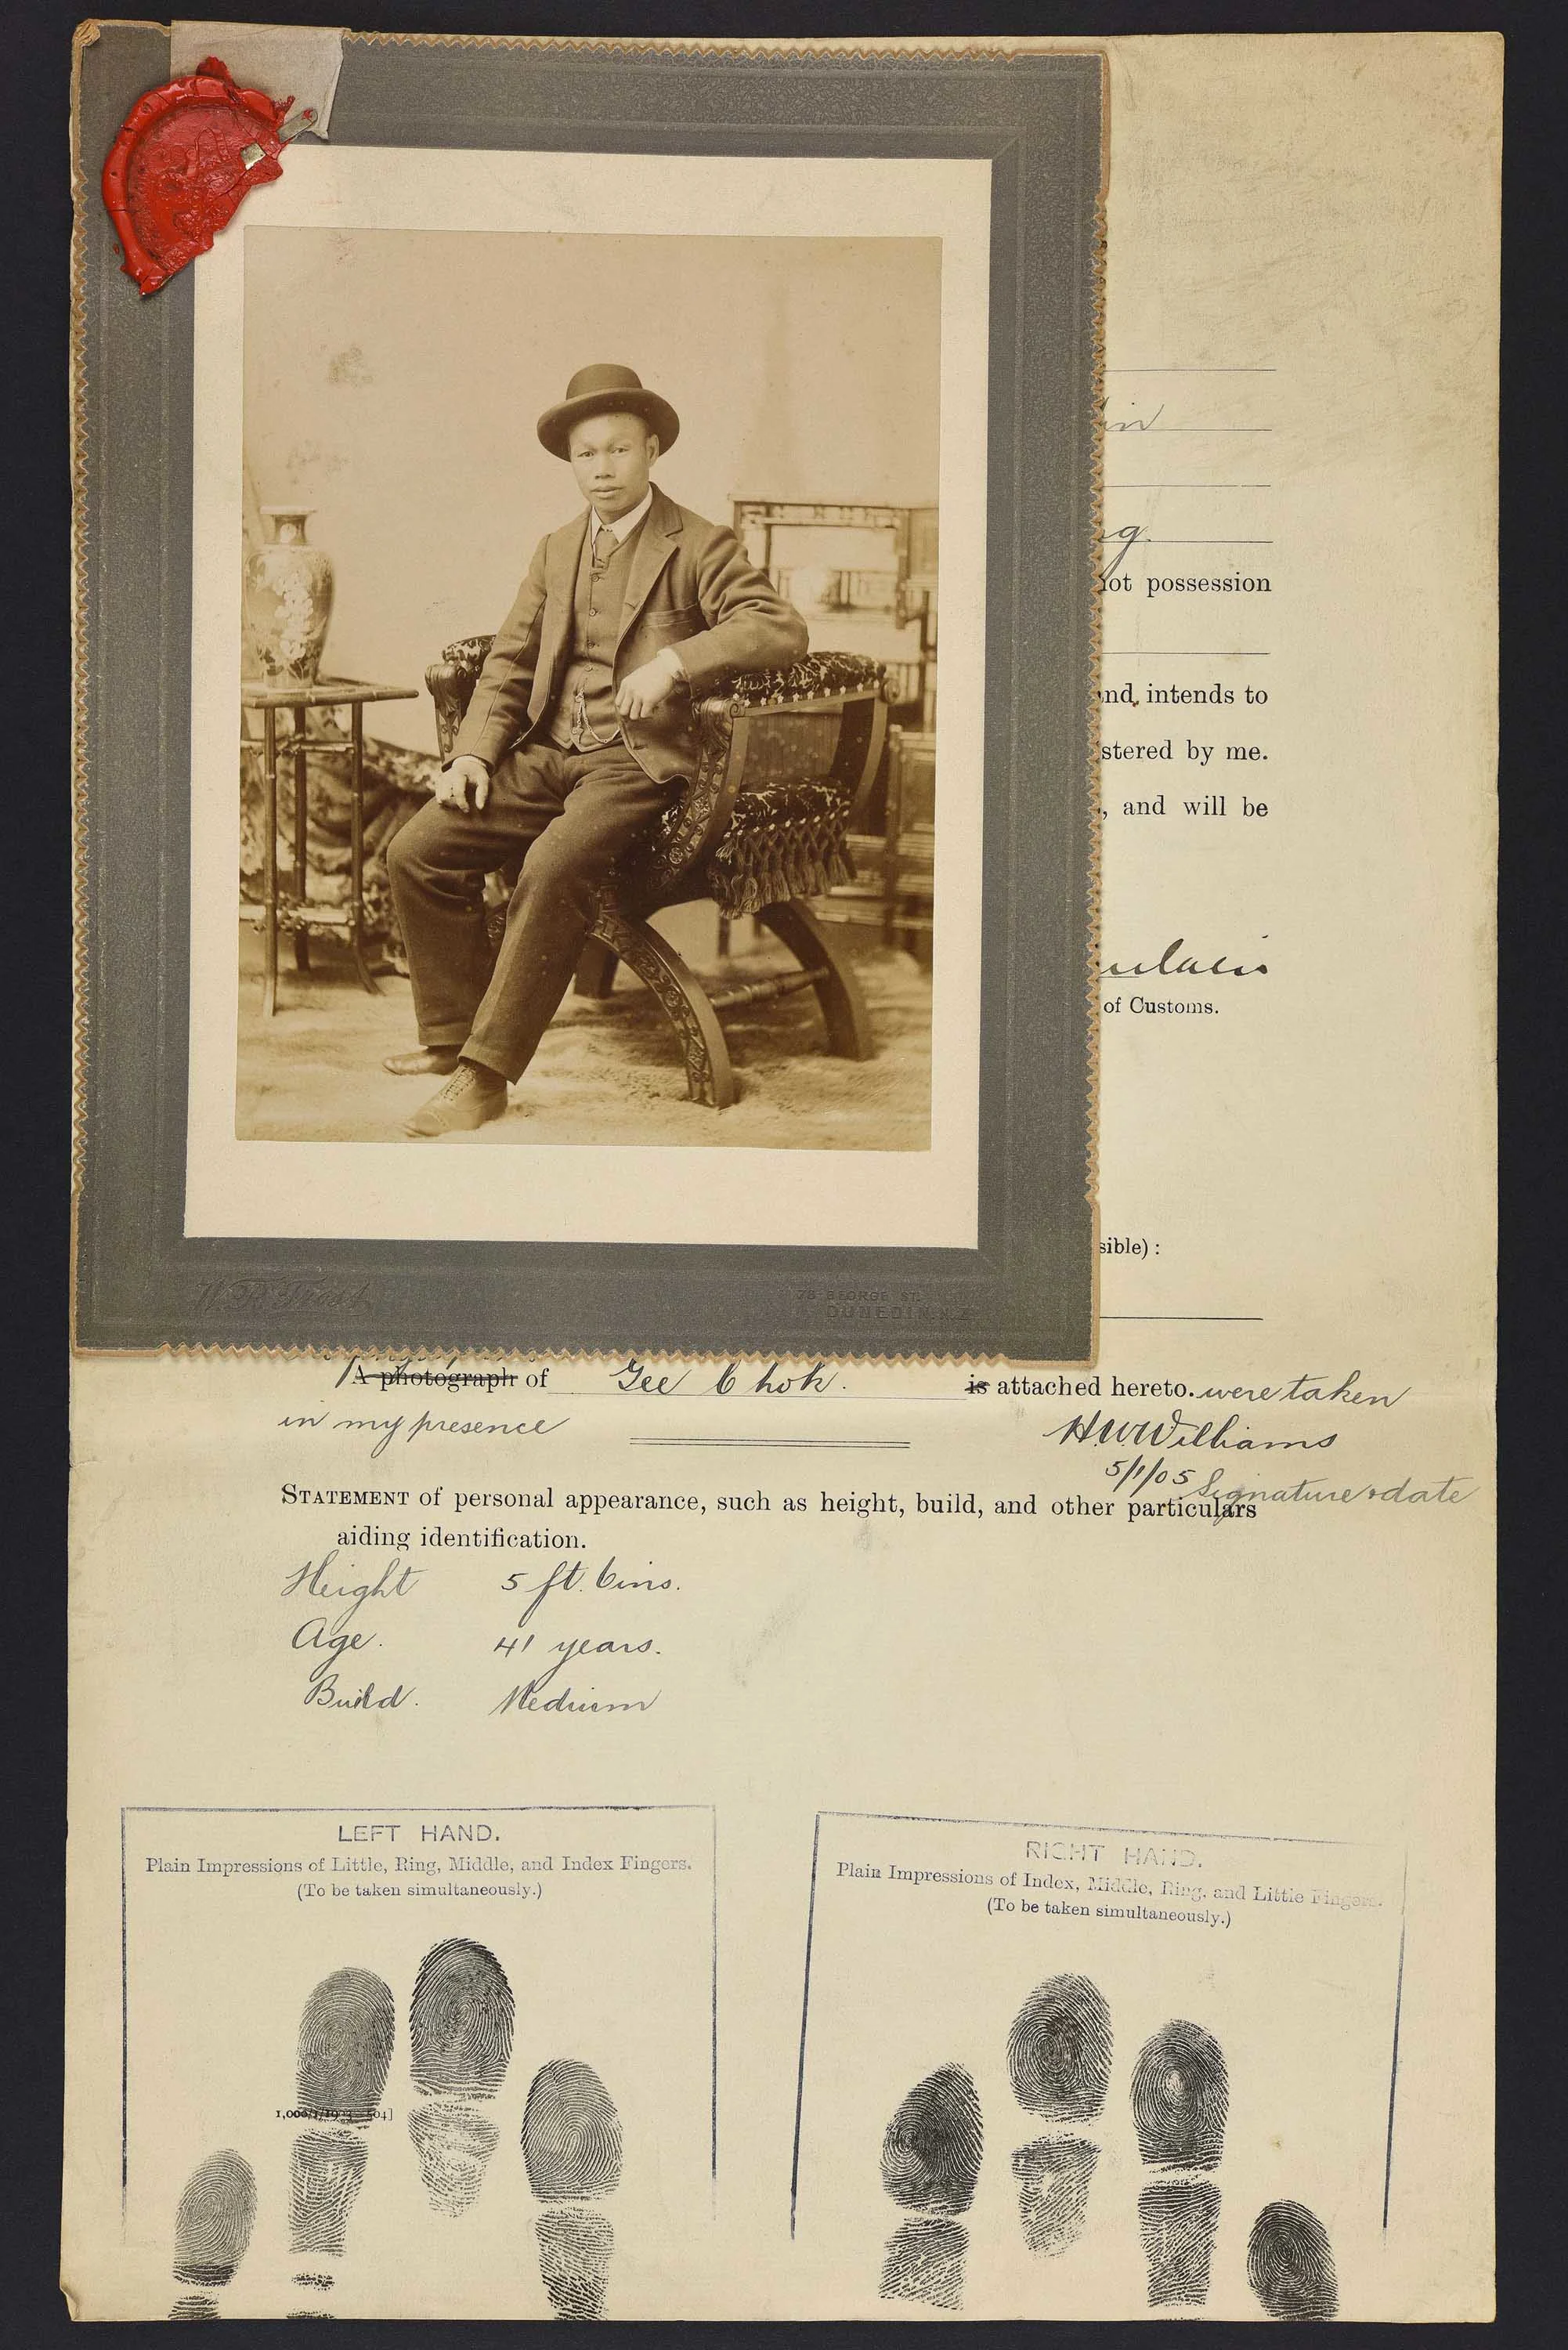 in
g.
not possession
and, intends to
stered by me.
, and will be
of Customs.
sible) :
W. R. Frost
78 GEORGE ST.
DUNEDIN N.Z.
A photograph of Gee Chok. is attached hereto. were taken
in my presence
H.W.Williams
5/1/05 Signature & date
STATEMENT of personal appearance, such as height, build, and other particulars
aiding identification.
Height 5 ft. 6 ins.
Age. 41 years.
Build. Medium
LEFT HAND.
Plain Impressions of Little, Ring, Middle, and Index Fingers.
(To be taken simultaneously.)
RIGHT HAND.
Plain Impressions of Index, Middle, Ring, and Little Fingers.
(To be taken simultaneously.)